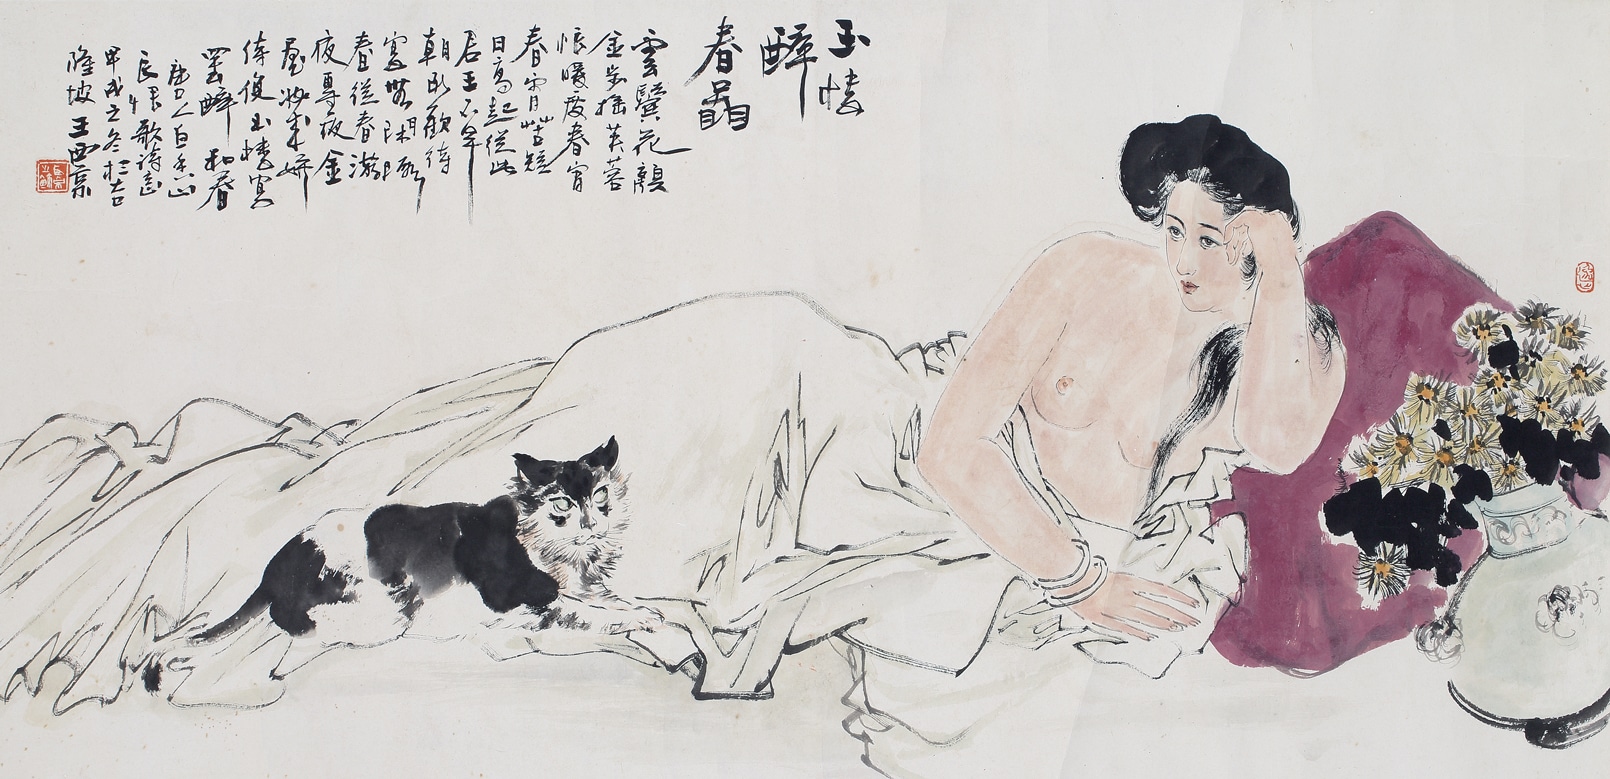 玉樓
醉
春
雲鬢花顏
金步搖芙蓉
帳暖度春宵
春宵苦短
日高起從此
君王不早
朝承歡侍
宴無閑暇
春從春遊
夜專夜金
屋妝成嬌
侍夜玉樓宴
罢醉和春
唐人白香山
長恨歌詩意
甲戌之冬於吉
隆坡王西京